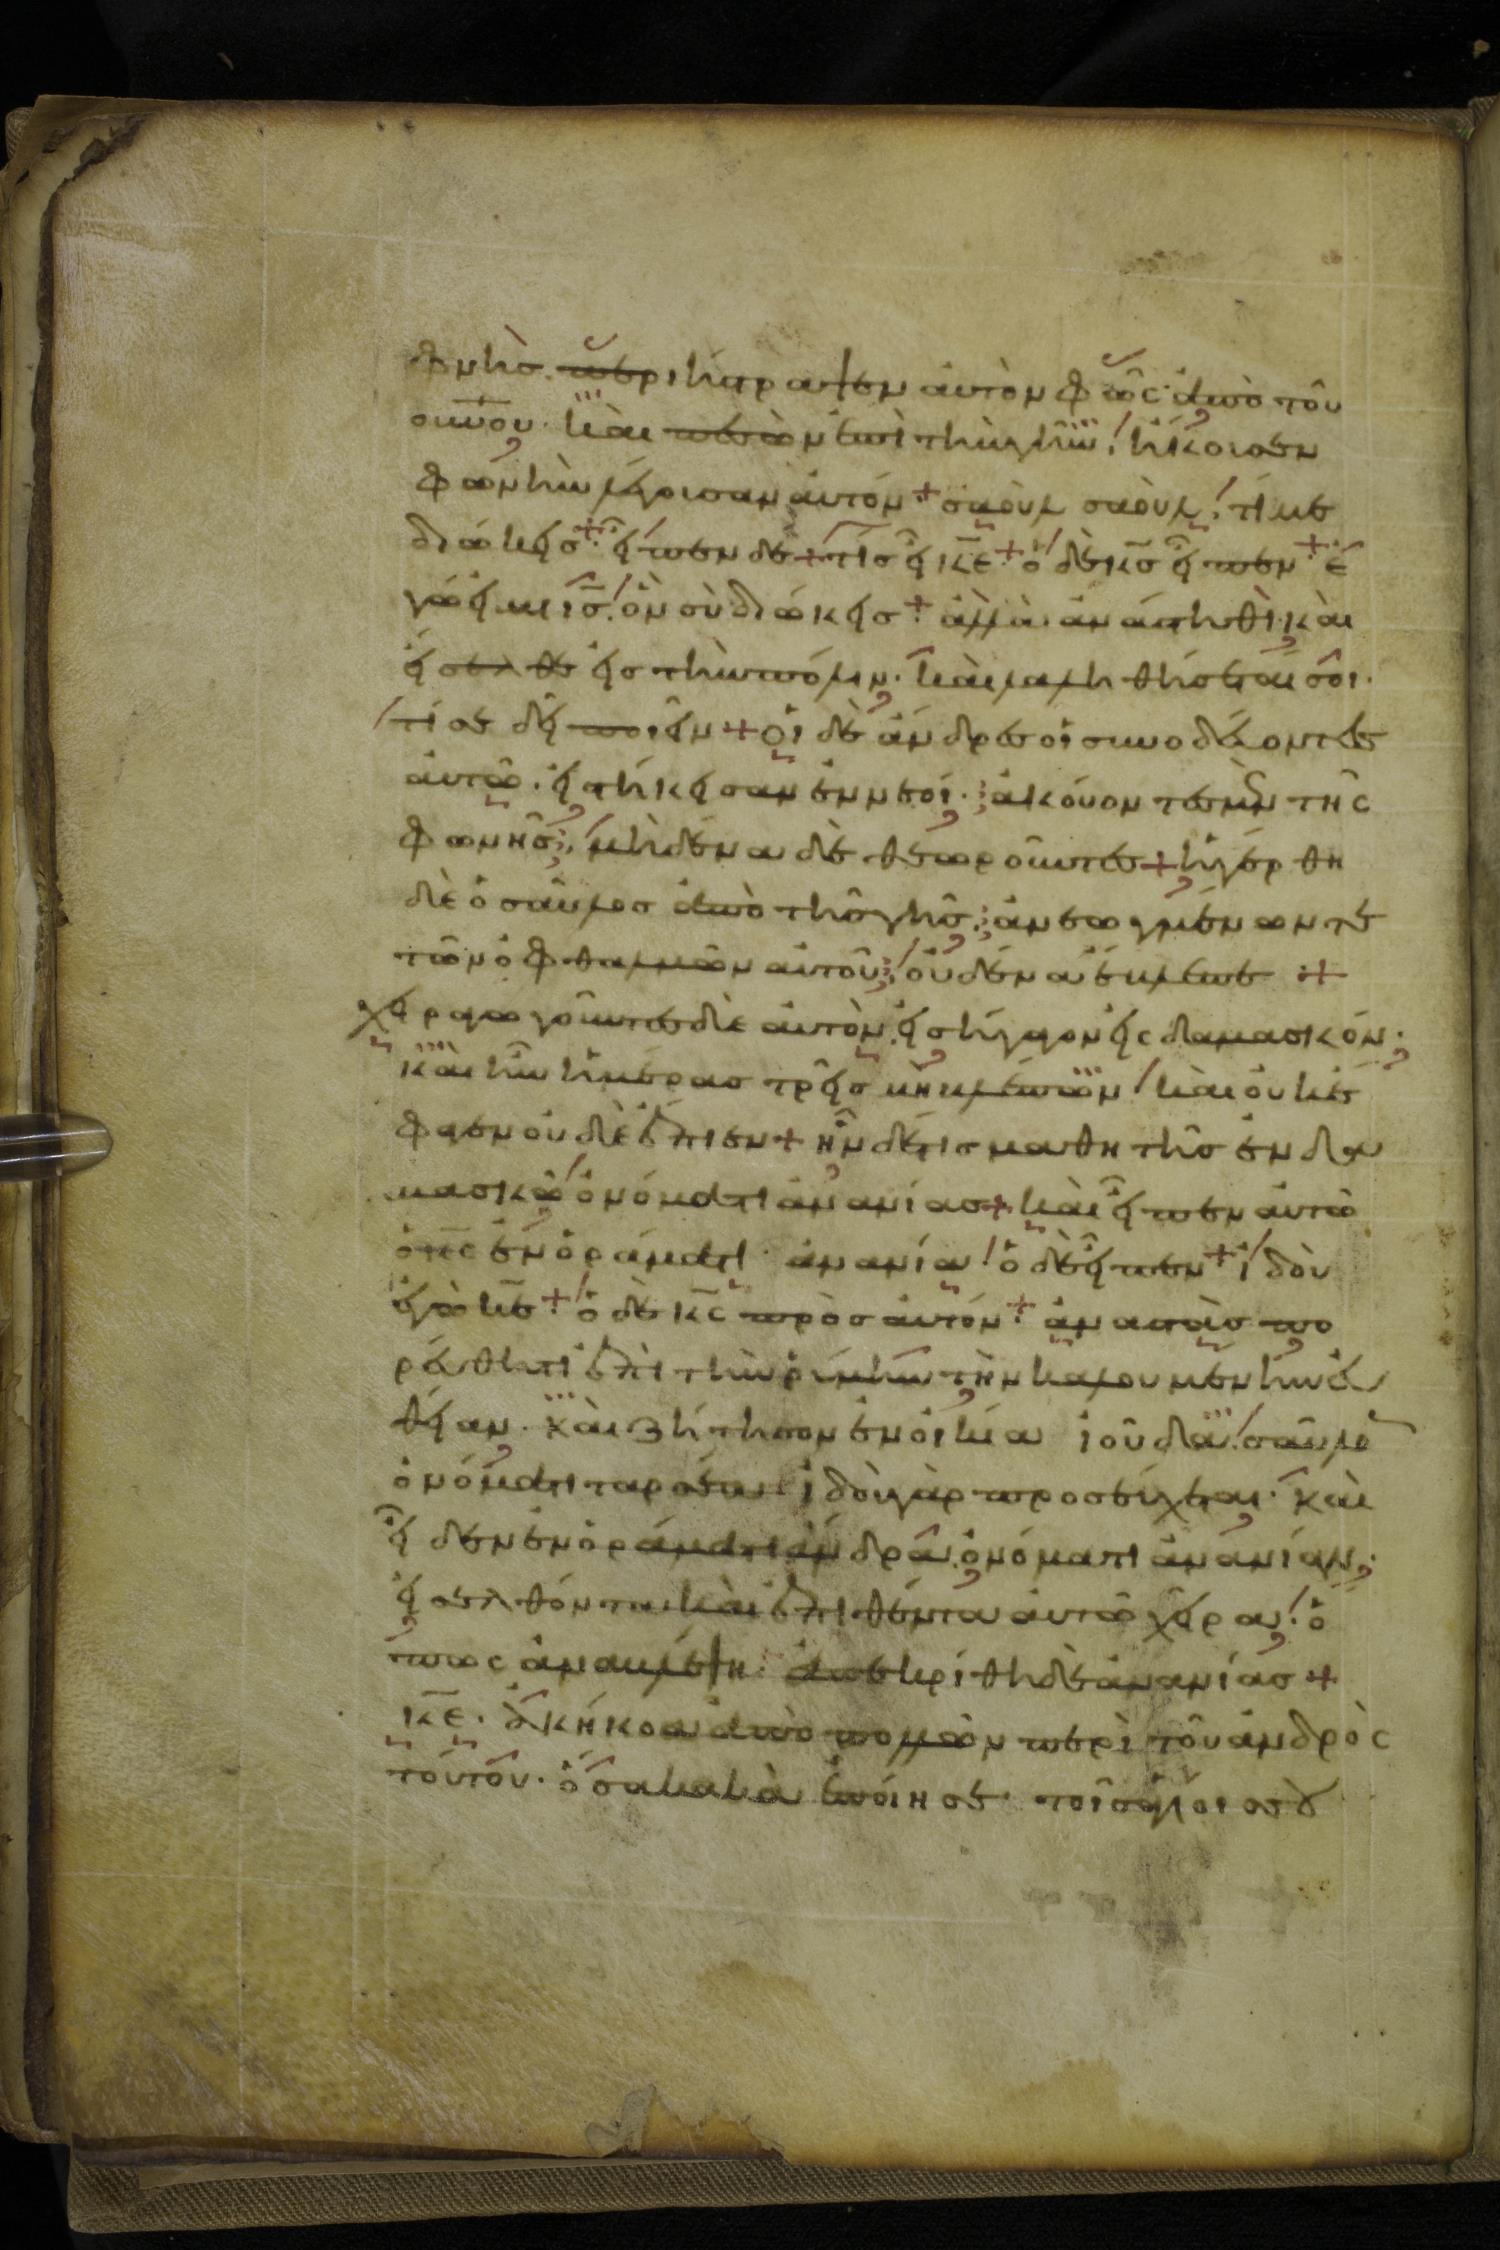 φνης περιήστραψεν ἀυτὸν φῶς ἀπὸ τοῦ
ουνου· καὶ πεσὼν ἐπὶ τὴν γῆν, ἤκουσεν
φωνὴν λέγουσαν ἀυτόν + σαοὺλ σαοὺλ, τί με
διώκεις + εἶπεν δὲ + τίς εἶ κε + ὁ δὲ κς εἶπεν + ἐ
γώ εἰμι ις ὃν σὺ διώκεις + ἀλλὰ ἀνάστηθι καὶ
εἴσελθε εἰς τὴν πόλιν· καὶ λαληθήσεταί σοι·
τί σε δεῖ ποιεῖν + οἱ δὲ ἄνδρες οἱ συνοδέυοντες
ἀυτῶ· εἱστήκεισαν ἐννεοί· ἀκούοντες μὲν τῆς
φωνῆς, μηδένα δὲ θεωροῦντες + ἠγέρθη
δὲ ὁ σαῦλος ἀπὸ τῆς γῆς· ἀνεωγμένων τὲ
τῶν ὀφθαλμῶν ἀυτοῦ, οὐδένα ἔβλεπε +
χειραγωγοῦντες δὲ ἀυτὸν, εἰσήγαγον εἰς δαμασκόν·
καὶ ἦν ἡμέρας τρεῖς μὴ βλέπων, καὶ οὐκ ἔ
φαγεν οὐδὲ ἔπιεν + ἦν δέ τις μαθητὴς ἐν δα
μασκῶ ὀνόματι ἀνανίας + καὶ εἶπεν ἀυτῶ
ὁ κς ἐν ὁράματι· ἀνανία, ὁ δὲ εἶπεν + ἰδοὺ
ἐγὼ κε + ὁ δὲ κς πρὸς ἀυτόν + ἀναστὰς πο
ρέυθητι ἐπὶ τὴν ῥύμην τὴν καλουμένην ἐυ
θεῖαν· καὶ ζήτησον ἐν οἰκία ἰούδα, σαῦλο
ὀνόματι ταρσέα· ἰδοὺ γὰρ προσεύχεται· καὶ
εἶδεν ἐν ὁράματι ἄνδρα ὀνόματι ἀνανίαν·
εἰσελθόντα καὶ ἐπιθέντα ἀυτῶ χεῖρα, ὅ
πως ἀναβλέψη· ἀπεκρίθη δὲ ἀνανίας +
κε· ἀκήκοα ἀπὸ πολλῶν περὶ τοῦ ἀνδρὸς
τούτου· ὅσα κακὰ ἐποίησε· τοῖς ἁγίοις σου